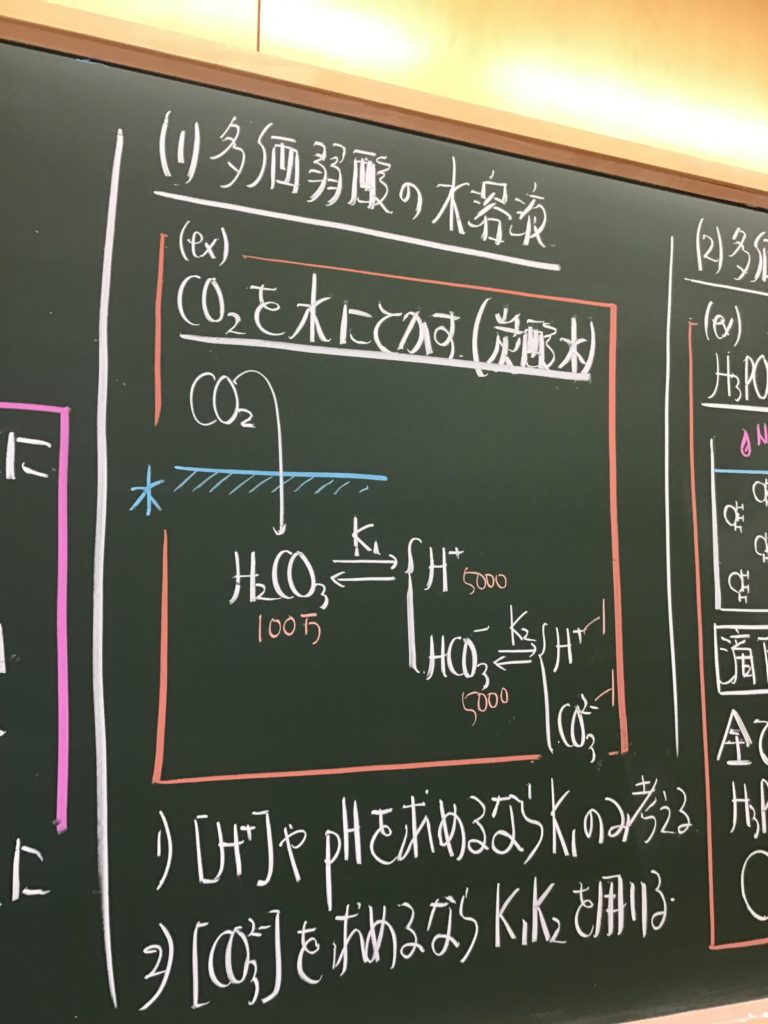 (1) 多価弱酸の水溶液
(ex)
CO₂を水にとかす (炭酸水)
CO₂
水
H₂CO₃ ⇄ K₁ { H⁺ 5000
100万
HCO₃⁻ ⇄ K₂ { H⁺ 1
5000
CO₃²⁻ 1
1) [H⁺]や pHを求めるならK₁のみ考える
2) [CO₃²⁻]を求めるなら K₁K₂ を用いる.
に
に
(2) 多価
(ex)
H₃PO
N
滴下
全て
H₃P